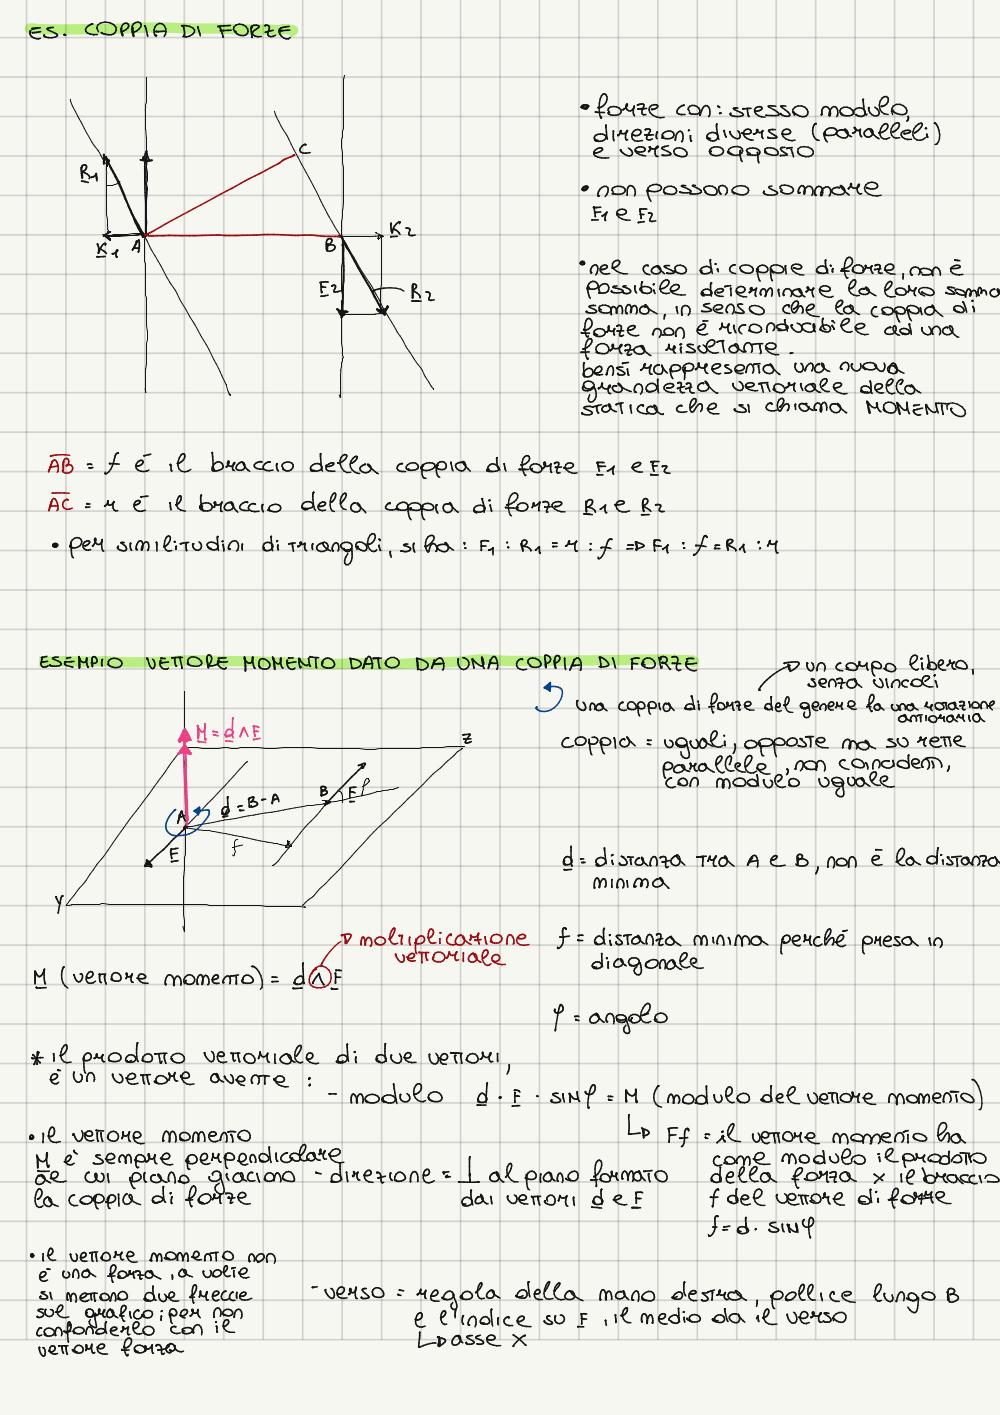 ES. COPPIA DI FORZE
• forze con: stesso modulo,
direzioni diverse (paralleli)
e verso opposto
• non possono sommare
F1 e F2
• nel caso di coppie di forze, non è
possibile determinare la loro somma
somma, in senso che la coppia di
forze non è riconducibile ad una
forza risultante.
bensì rappresenta una nuova
grandezza vettoriale della
statica che si chiama MOMENTO
R1
K1
A
C
B
K2
F2
R2
AB = f è il braccio della coppia di forze F1 e F2
AC = r è il braccio della coppia di forze R1 e R2
• per similitudini di triangoli, si ha : F1 : R1 = r : f => F1 : f = R1 : r
ESEMPIO VETTORE MOMENTO DATO DA UNA COPPIA DI FORZE
un corpo libero,
senza vincoli
una coppia di forze del genere fa una rotazione
antioraria
coppia = uguali, opposte ma su rette
parallele, non coincidenti,
con modulo uguale
M = d ∧ F
z
A
d = B - A
B
F
φ
F
f
Y
d = distanza tra A e B, non è la distanza
minima
f = distanza minima perché presa in
diagonale
φ = angolo
moltiplicazione
vettoriale
M (vettore momento) = d ∧ F
* il prodotto vettoriale di due vettori,
è un vettore avente :
- modulo d · F · sinφ = M (modulo del vettore momento)
Ff = il vettore momento ha
come modulo il prodotto
della forza x il braccio
f del vettore di forze
f = d · sinφ
• il vettore momento
M è sempre perpendicolare
al cui piano giaciono
la coppia di forze
- direzione = ⊥ al piano formato
dai vettori d e F
• il vettore momento non
è una forza, a volte
si mettono due frecce
sul grafico; per non
confonderlo con il
vettore forza
- verso = regola della mano destra, pollice lungo B
e l'indice su F, il medio da il verso
asse x